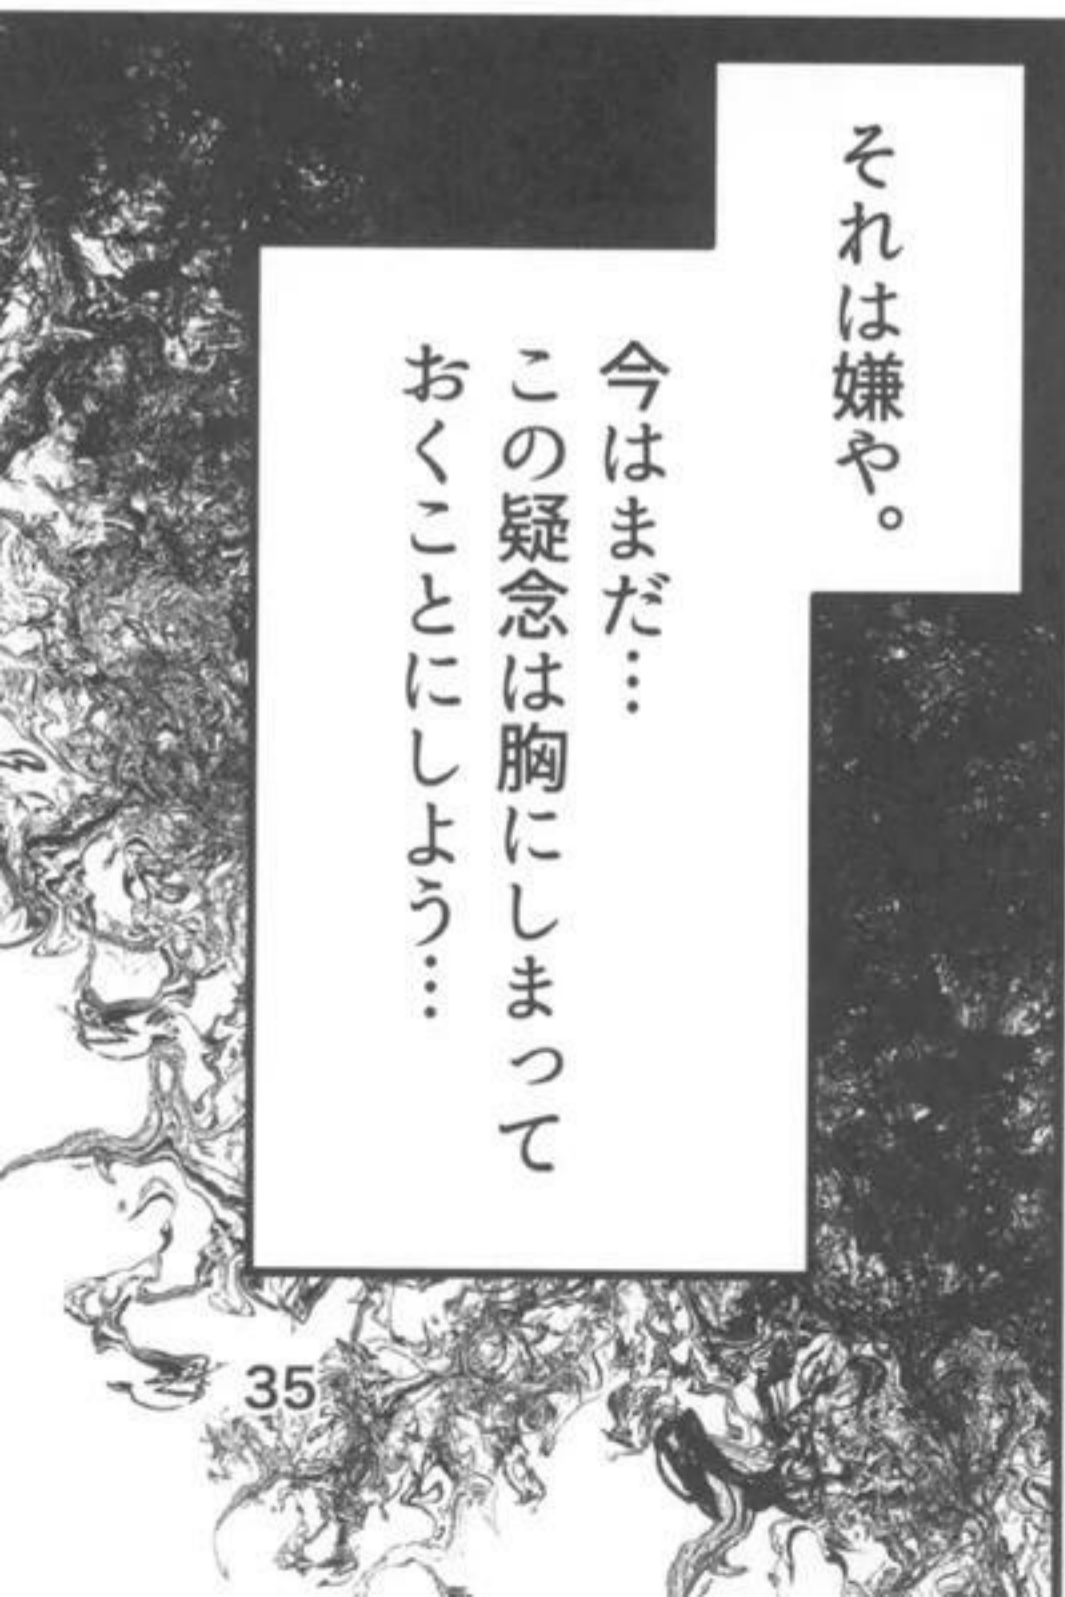 それは嫌や。
今はまだ…
この疑念は胸にしまって
おくことにしよう…
35